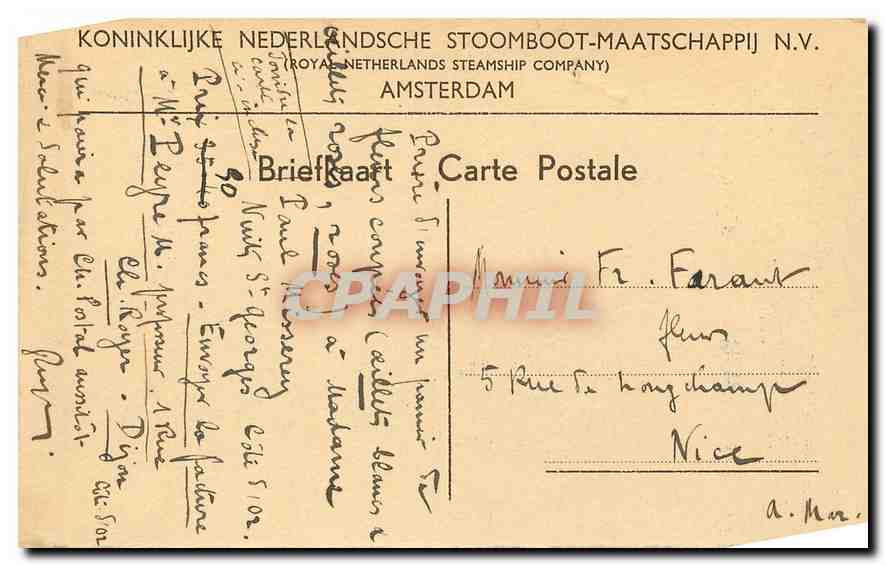 KONINKLIJKE NEDERLANDSCHE STOOMBOOT-MAATSCHAPPIJ N.V.
(ROYAL NETHERLANDS STEAMSHIP COMPANY)
AMSTERDAM
Briefkaart Carte Postale
Prière d'envoyer un panier de
fleurs coupées (œillets blancs &
œillets roses, roses) à Madame
Paul Misserey
Nuits St Georges Côte d'Or.
Prix 90 francs - Envoyer la facture
à Mr Peyre M. professeur, 1 Rue
Ch. Royer - Dijon
Côte d'Or
qui paiera par Ch. Postal aussitôt
Merci & Salutations.
Joindre la
carte
ci-incluse
œillets
Monsieur Fr. Faraut
fleurs
5 Rue de Longchamp
Nice
a. Mar.
CPAPHIL